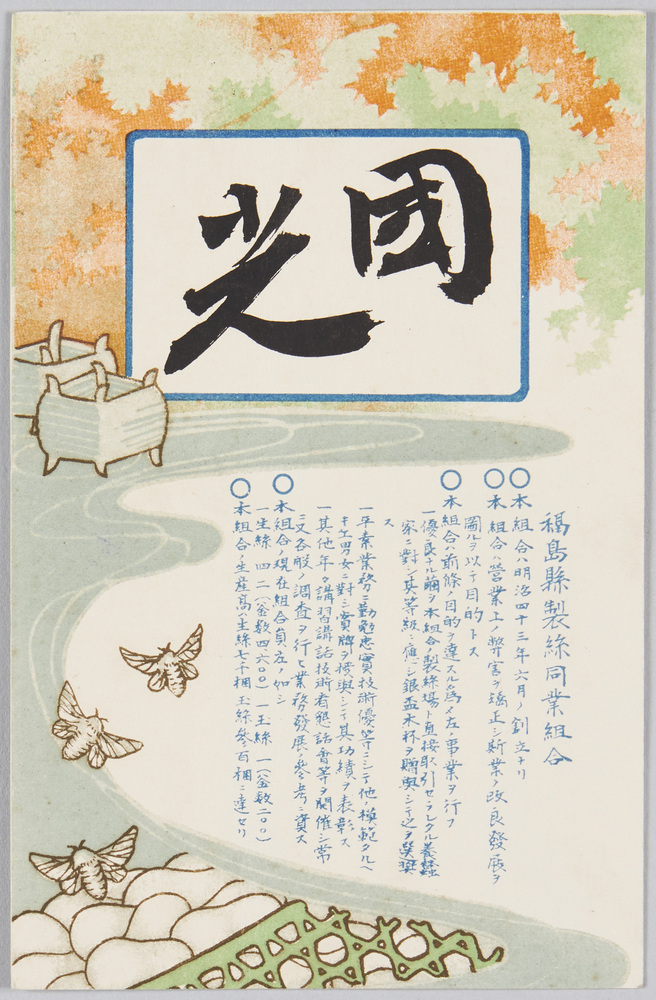 國光
福島縣製絲同業組合
○本組合ハ明治四十三年六月ノ創立ナリ
○本組合ハ營業上ノ弊害ヲ矯正シ斯業ノ改良發展ヲ
圖ルヲ以テ目的トス
○本組合ハ前條ノ目的ヲ達スル爲メ左ノ事業ヲ行フ
一優良ナル繭ヲ本組合ノ製絲場ト直接取引セラレタル養蠶
家ニ對シ其等級ニ應シ銀盃木杯ヲ贈與シテ之ヲ奬
ス
一平素業務ニ勤勉忠實技術優等ニシテ他ノ模範タルヘ
キ工男女ニ對シ賞牌ヲ授與シテ其功績ヲ表彰ス
一其他年々講習講話技術者懇話會等ヲ開催シ常
ニ又各般ノ調査ヲ行ヒ業務發展ノ參考ニ資ス
○本組合ノ現在組合員左ノ如シ
一生絲 四二(釜数四六〇〇) 一玉絲 一一(釜数二〇〇)
○本組合ノ生産高ハ生絲七千梱玉絲參百梱ニ達セリ